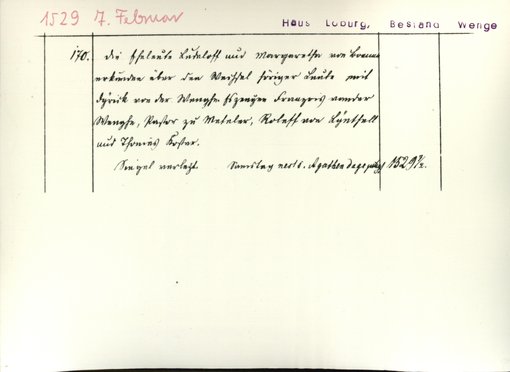 1529 7. Februar
Haus Loburg, Bestand Wenge
170. Die Eheleute Ludeloff und Margaretha von
urkunden über den Wechsel höriger Leute mit
Dyrick von der Wenghe. Zeugen François van der
Wenghe, Pastor zu Metelen, Roleff von
und Thonies Koster.
Siegel verletzt. Samstag nest s. Agathen dage 1529 7/2.